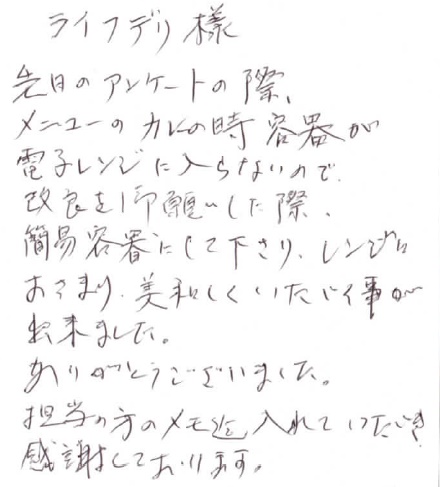 ライフデリ様
先日のアンケートの際、
メニューのカレーの時容器が
電子レンジに入らないので、
改良を御願いした際、
簡易容器にして下さり、レンジに
おさまり、美味しくいただく事が
出来ました。
ありがとうございました。
担当の方のメモ迄入れていただき
感謝しております。